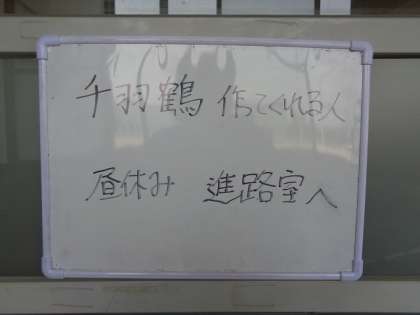 千羽鶴 作ってくれる人
昼休み 進路室へ